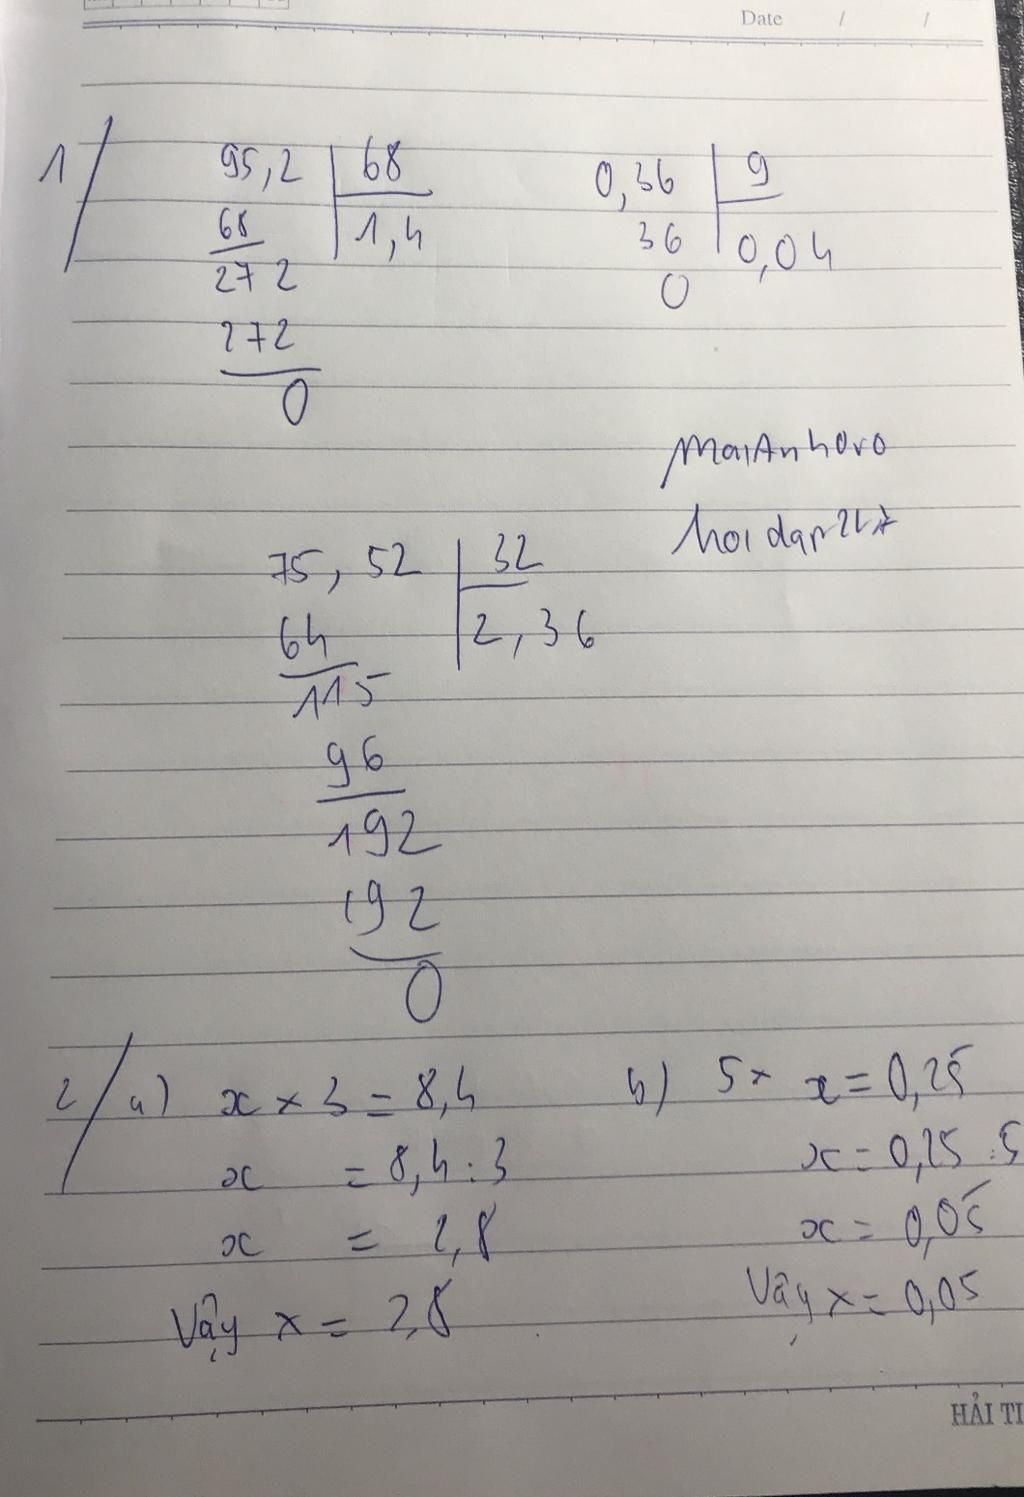 Date / /
1/
95,2 68
68 1,4
272
272
0
0,36 9
36 0,04
0
MaiAnhOvO
hoidap247
75,52 32
64 2,36
115
96
192
192
0
2/ a) x × 3 = 8,4
x = 8,4 : 3
x = 2,8
Vậy x = 2,8
b) 5 × x = 0,25
x = 0,25 : 5
x = 0,05
Vậy x = 0,05
HẢI TI